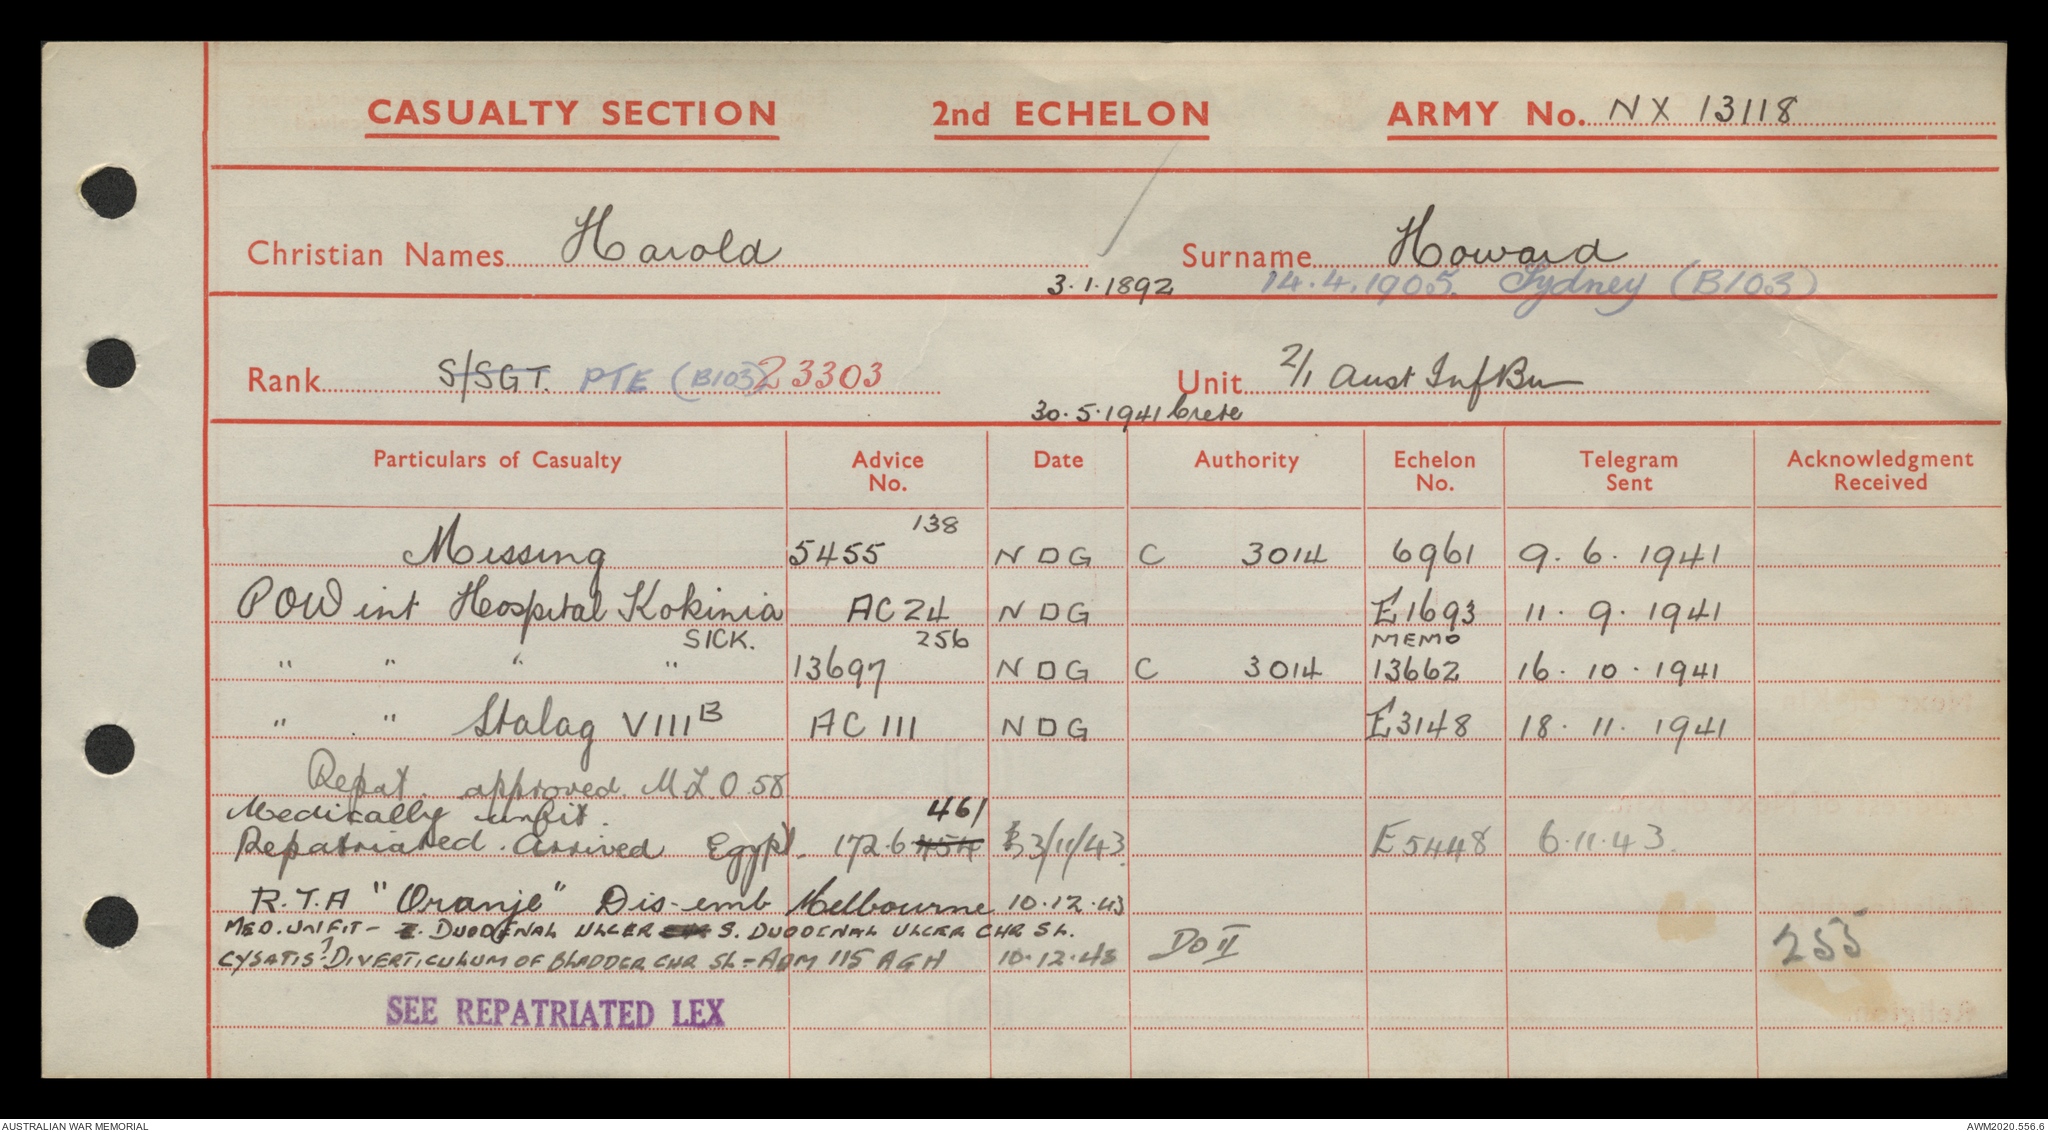 CASUALTY SECTION 2nd ECHELON ARMY No. NX 13118
Christian Names Harold Surname Howard
3.1.1892 14.4.1905. Sydney (B103)
Rank S/SGT. PTE (B103) 23303 Unit 2/1 Aust Inf Bn
30.5.1941 Crete
Particulars of Casualty Advice No. Date Authority Echelon No. Telegram Sent Acknowledgment Received
138
Missing 5455 NDG C 3014 6961 9.6.1941
POW int Hospital Kokinia AC 24 NDG E1693 11.9.1941
SICK. 256 MEMO
" " " " 13697 NDG C 3014 13662 16.10.1941
" " Stalag VIII B AC 111 NDG E3148 18.11.1941
Repat. approved. M L O 58
Medically unfit. 461
Repatriated. Arrived Egypt. 172.6 454 3/11/43 E5448 6.11.43.
R.T.A "Oranje" Dis-emb Melbourne 10.12.43
MED. UNFIT - I. DUODENAL ULCER S. DUODENAL ULCER CHR SL.
CYSATIS ? DIVERTICULUM OF BLADDER CHR SL - ADM 115 AGH 10.12.43 DO II 255
SEE REPATRIATED LEX
AUSTRALIAN WAR MEMORIAL AWM2020.556.6